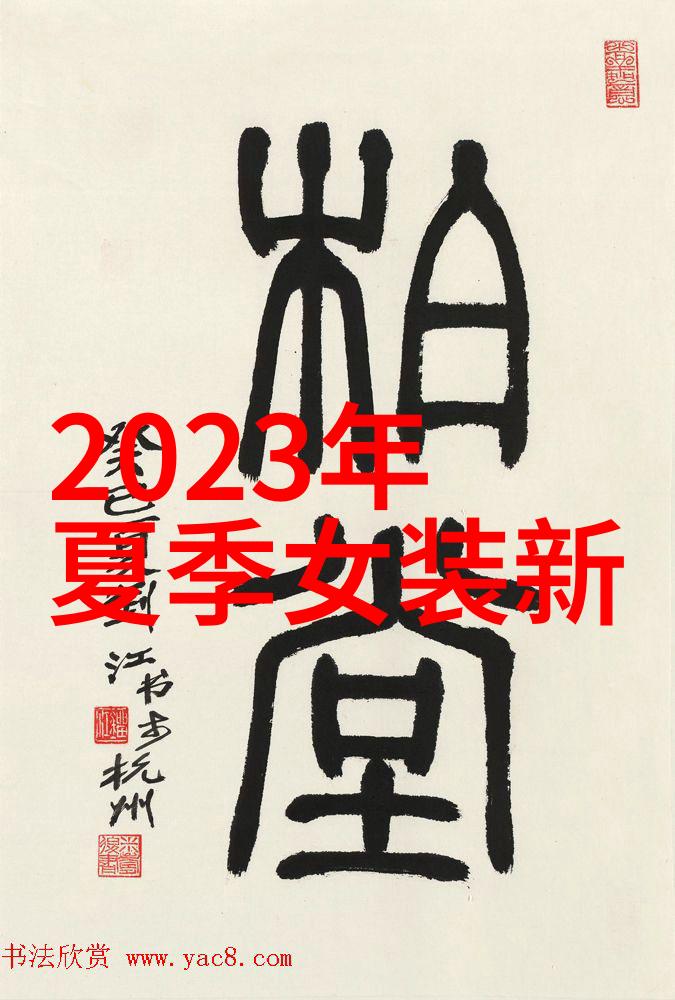 柏堂
2023年
夏季女装新
癸巳夏刘江书于杭州
书法欣赏 www.yac8.com